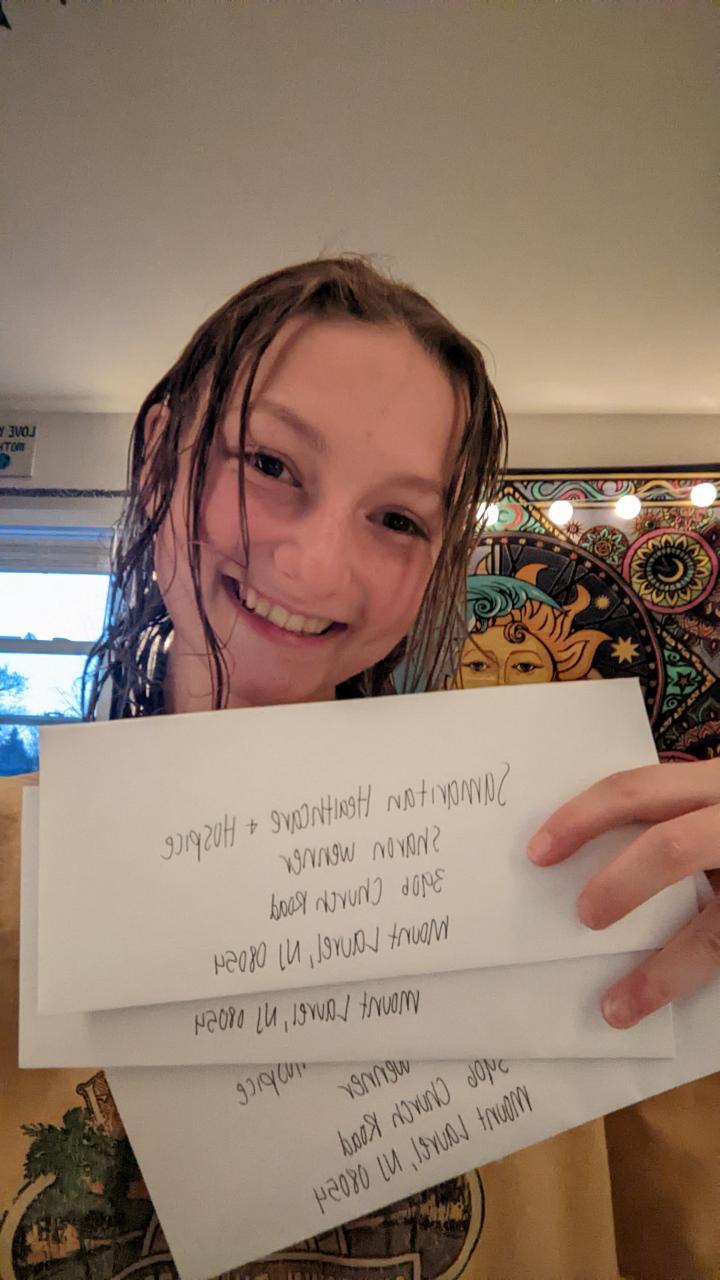 LOVE Y
MOTH
Samaritan Healthcare + Hospice
Sharon Wenner
3906 Church Road
Mount Laurel, NJ 08054
Mount Laurel, NJ 08054
Hospice
Wenner
3906 Church Road
Mount Laurel, NJ 08054